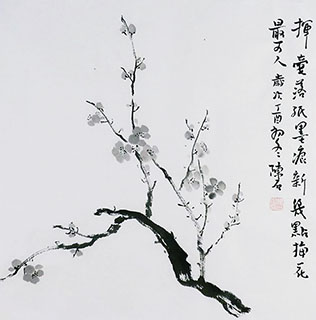 揮毫落紙墨痕新幾點梅花
最可人歲次丁酉初冬陳石